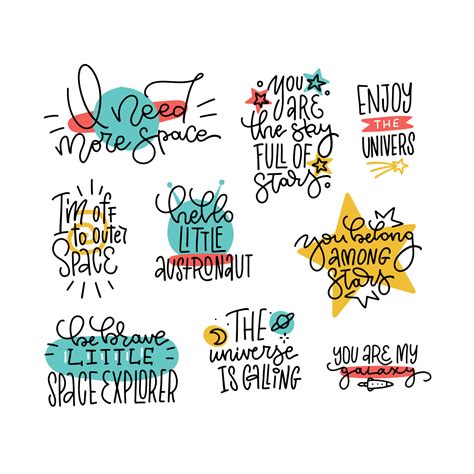 I need
more space
YOU
ARE
the sky
FULL OF
stars
ENJOY
THE
UNIVERS
I'm off
to outer
SPACE
hello
LITTLE
AUSTRONAUT
you belong
AMONG
stars
be brave
LITTLE
SPACE EXPLORER
THE
universe
IS CALLING
YOU ARE MY
galaxy